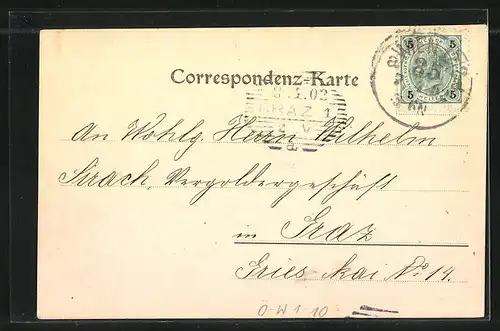 5 5
5 5
Correspondenz-Karte
GRAZ 1
An Wohlg. Herrn Wilhelm
Sirach, Vergoldergeschäft
in Graz
Gries kai No 14.
O-W 1 10